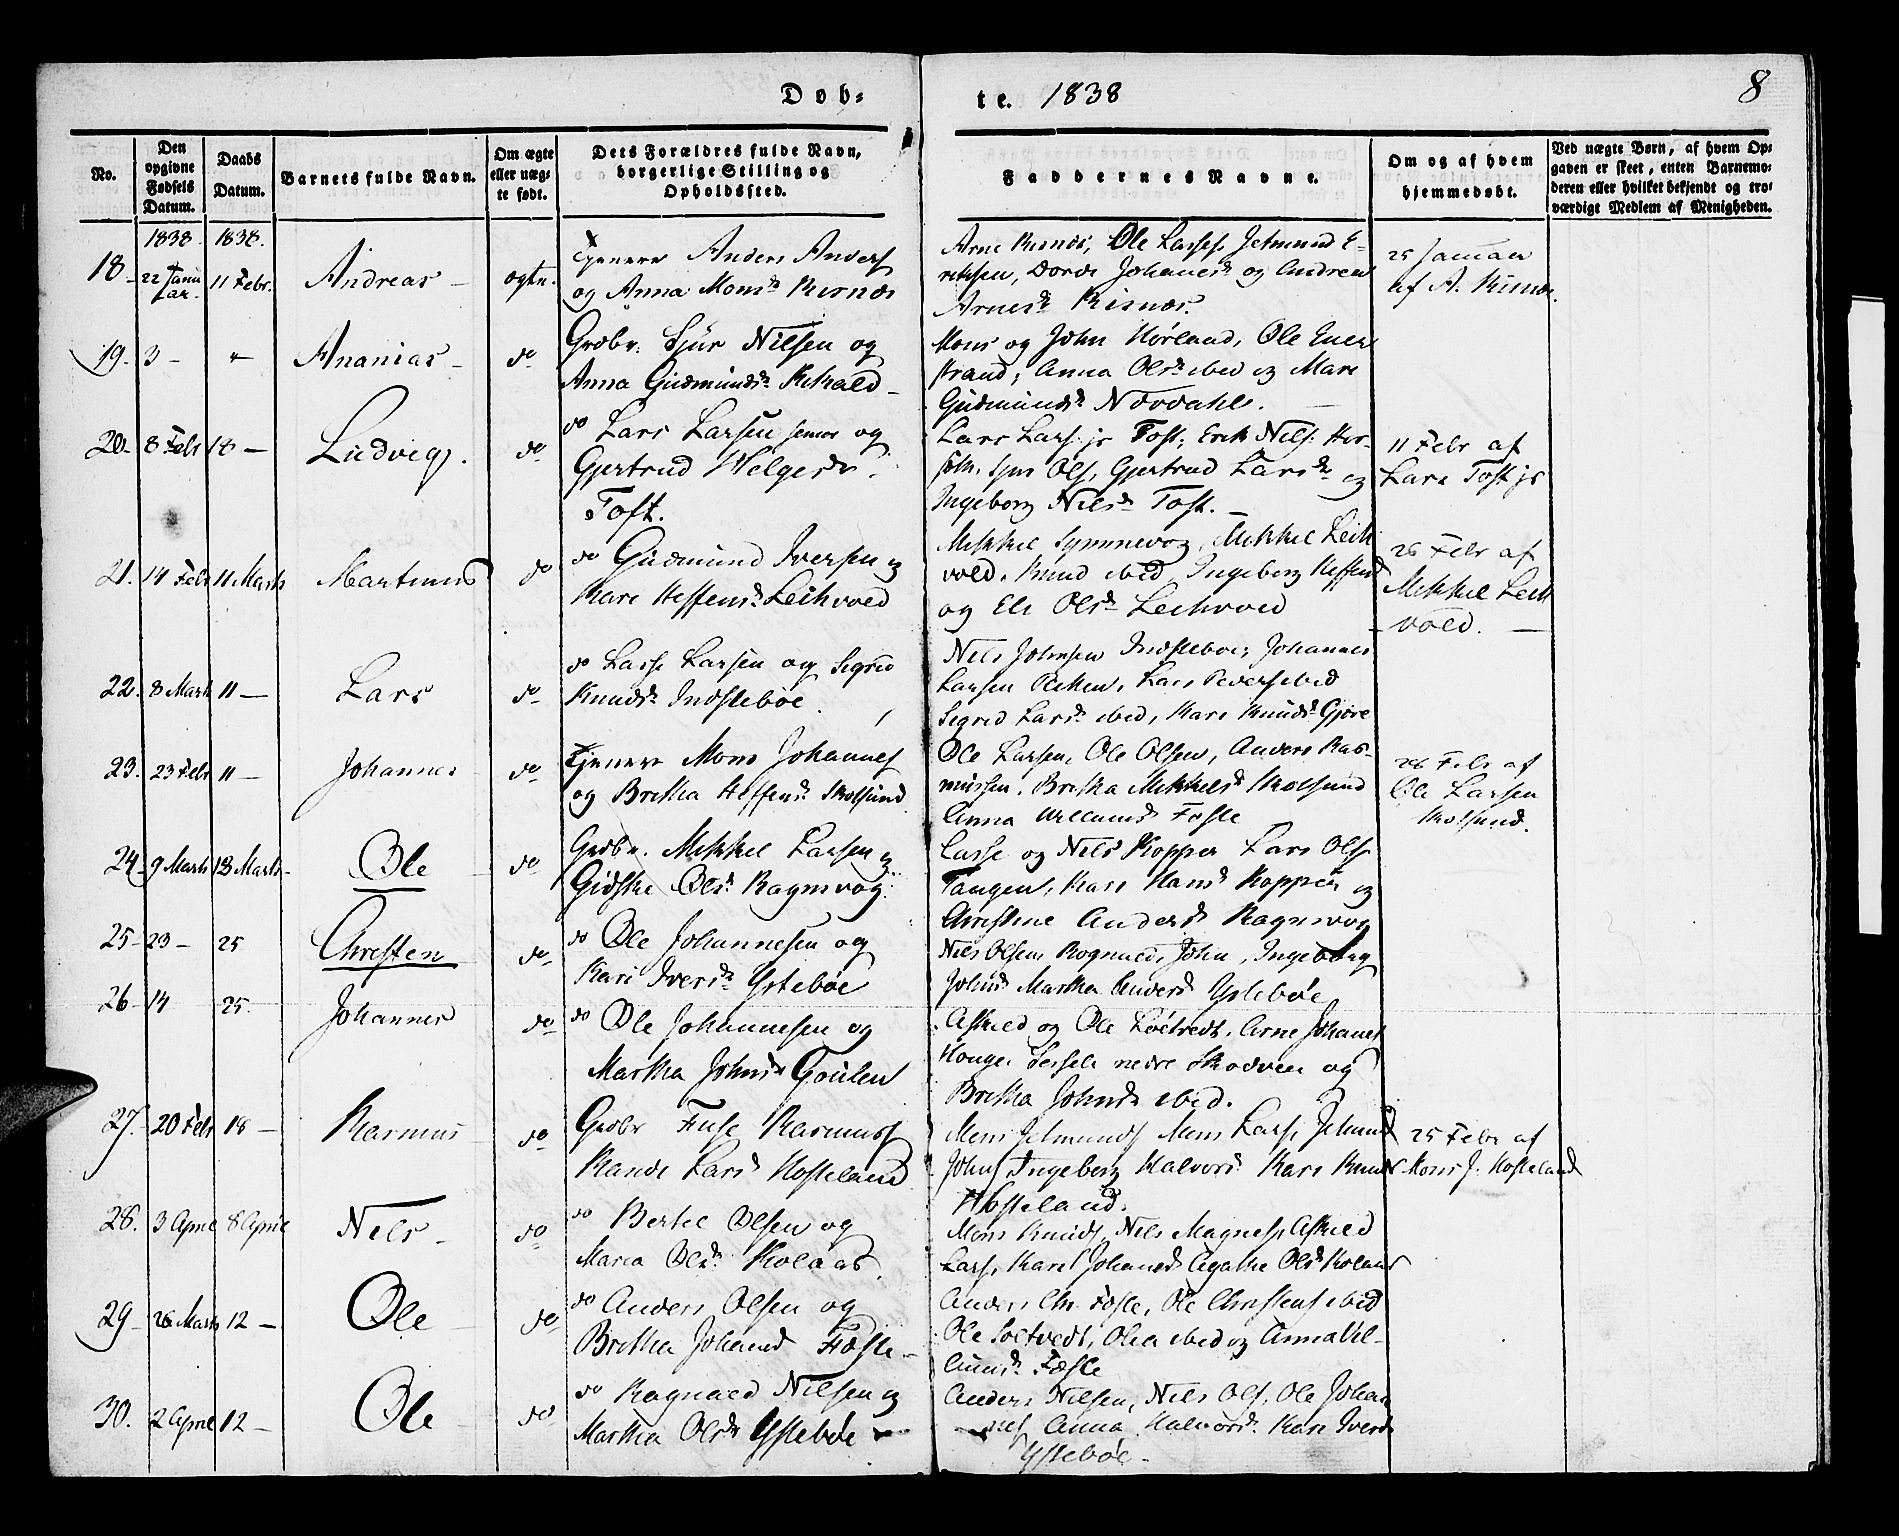 Døb-
te. 1838
8
No.
Den opgivne Fødsels Datum.
Daabs Datum.
Barnets fulde Navn.
Om ægte eller uægte født.
Dets Forældres fulde Navn, borgerlige Stilling og Opholdssted.
Faddernes Navne.
Om og af hvem hjemmedøbt.
Ved uægte Børn, af hvem Opgaven er skeet, enten Barnemoderen eller hvilket bekjendt og troværdigt Medlem af Menigheden.
1838. 1838.
18- 22 Januar- 11 Febr. Andreas- ægte.
Tjenere Anders Anders
og Anna Monsd. Risnæs
Arne Risnæs, Ole Lasses, Jetmund E-
riksen, Dorde Johanesd. og Andrea
Arnesd. Risnæs.
25 Januar
af A. Risnæs.
19. 3- " Ananias- do
Grdbr. Sjur Nilsen og
Anna Gudmundsd.
Mons og John Hørland, Ole
strand, Anna Olsd. ibid og Mari
Gudmundsd. Nordahl.
20. 8 Febr 18- Ludvig. do
do Lars Larsen senior og
Gjertrud Helgesdr.
Toft.
Lars Lars. jr Toft, Erik Nils.
Ols, Gjertrud Larsd. og
Ingeborg Nilsd. Toft.
11 Febr af
Lars Toft jr
21. 14 Febr 11 Marts Martinus do
do Gudmund Iversen og
Kari Steffensd. Leikvold
Mikkel Synnevog, Mikkel Leik
vold, Knud ibid, Ingeborg Steffensd
og Eli Olsd. Leikvold
26 Febr af
Mikkel Leik
vold.
22. 8 Marts 11- Lars do
do Lasse Larsen og Sigrid
Knudsd. Indstebøe.
Nils Johnsen Indstebøe, Johannes
Larsen, Lars ibid
Sigrid Larsd. ibid, Kari Knudsd.
23. 23 Febr 11- Johannes do
Tjenere Mons Johannes
og Britha Steffensd. Skolsund
Ole Larsen, Ole Olsen, Anders Ras-
mussen, Britha Mikkelsd. Skolsund
Anna Villumsd. Fosle
26 Febr af
Ole Larsen
Skolsund.
24. 9 Marts 18 Marts- Ole do
Grdbr. Mikkel Larsen og
Gidske Olsd. Ragnvog.
Lasse og Nils Kopper Lars Ols
Tangen, Kari Hansd. Kopper og
Christine Andersd. Ragnvog
25- 23- 25 Christen do
do Ole Johannesen og
Kari Iversd. Ystebøe
Nils Olsen, Ragnald, John, Ingeborg
Johnsd. Martha Andersd. Ystebøe
26- 14 25. Johannes do
do Ole Johannesen og
Martha Johnsd.
Askild og Ole, Arne Johanes
nedre og
Britha Johnsd. ibid.
27. 20 Febr 18- Rasmus do
Grdbr Rasmus
Rande Larsd. Hosteland
Mons Jetmunds Mons Lars, Jetmund
Johns Ingeborg Halvorsd. Kari Knudsd.
Hosteland.
25 Febr af
Mons J. Hosteland
28. 3 April 8 April Nils- do
do Bertel Olsen og
Maria Olsd. Kolaas.
Mons Knuds, Nils Magnes, Askild
Lars, Kari Johansd. Agathe Olsd Kolaas
29- 26 Marts 12- Ole do
do Anders Olsen og
Britha Johansd Fosle-
Anders Chr. Fosle, Ole Christens ibid
Ole, Olea ibid og Anna Vil-
lumsd. Fosle
30. 2 April 12- Ole do
do Ragnald Nilsen og
Martha Olsdr Ystebøe
Anders Nilsen, Nils Ols, Ole Johan
nes Anna Halvorsd. Kari Iversd
Ystebøe-